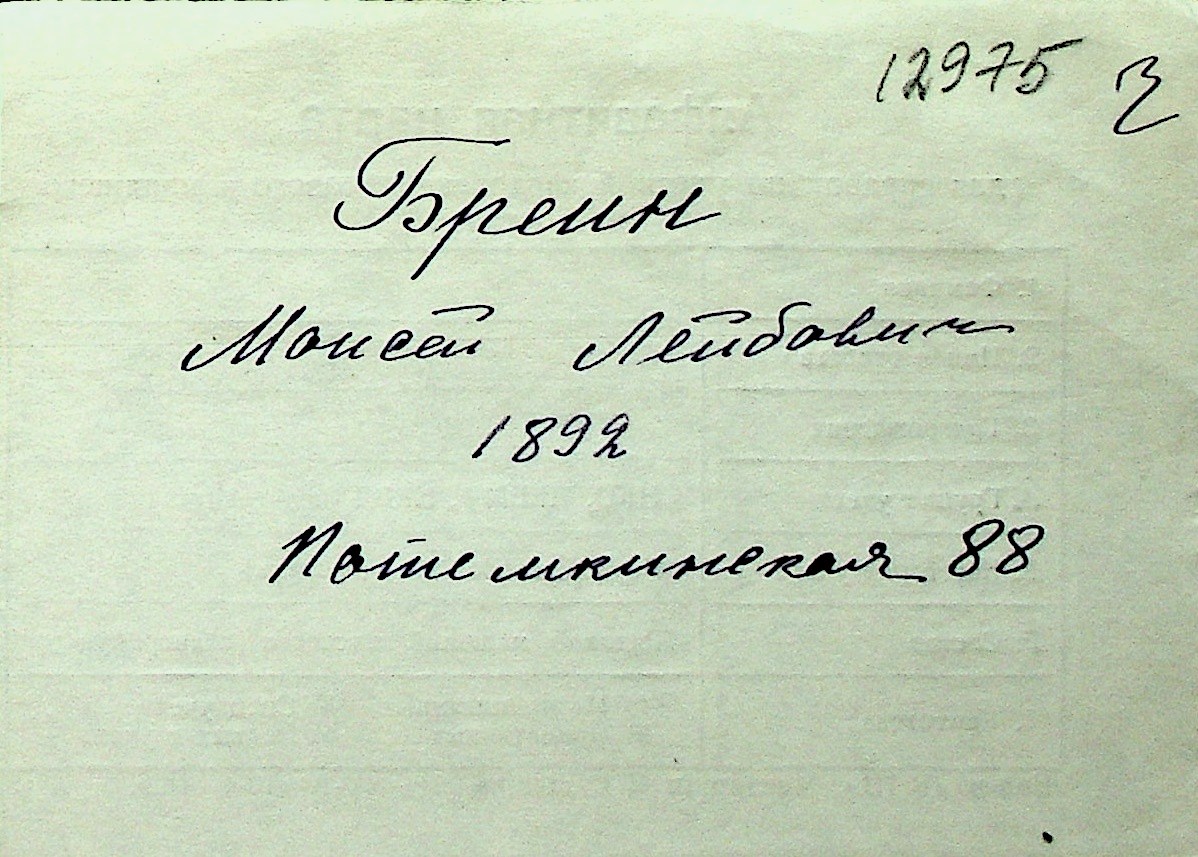 12975
Бреин
Моисей Лейбович
1892
Потемкинская 88